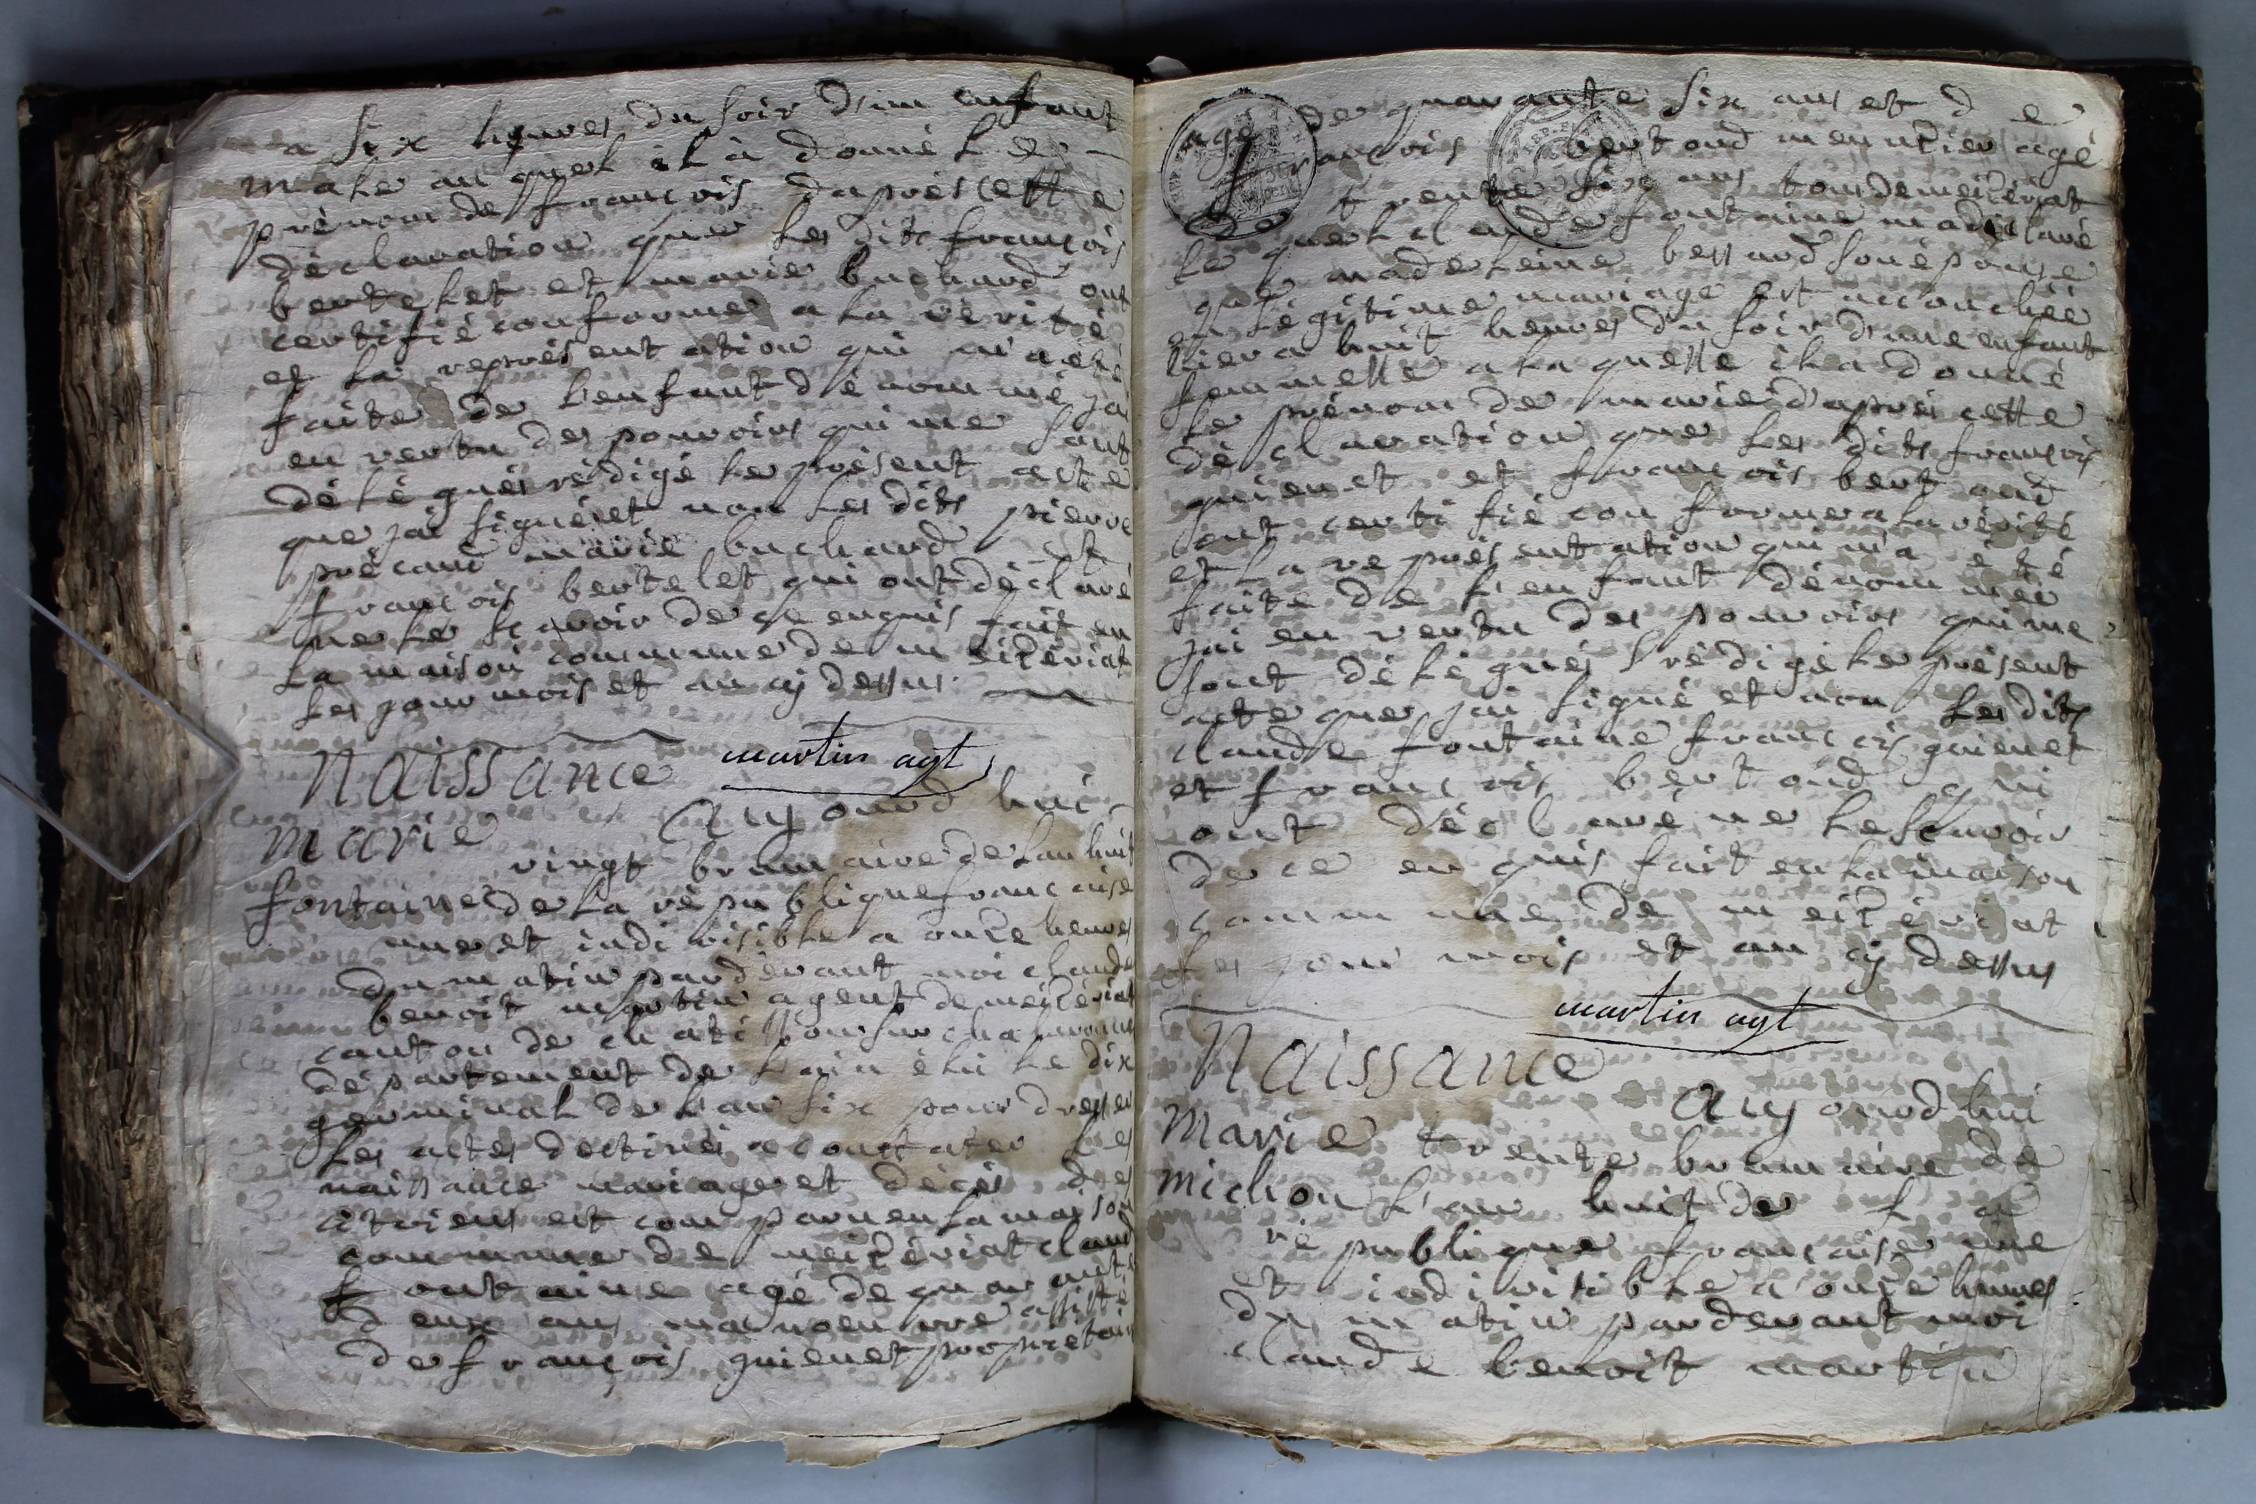 a six heures du soir d'un enfant
male au quel il à donné le
prénom de françois daprès cette
déclaration que les dits françois
bertelet et marie buchard ont
certifié conforme a la vérité
et la représentation qui m'a été
faite de l'enfant dénommé jai
en vertu des pouvoirs qui me sont
délégués rédigé le présent acte
que jai signé et non les dits pierre
marie buchard et
françois bertelet qui ont déclaré
ne le scavoir de ce enquis fait en
la maison commune de meizériat
les jour mois et an cy dessus
martin agt
Naissance
marie
fontaine
Auj ourd hui
vingt brumaire de lan huit
de la république francaise
une et indivisible a onze heures
du matin pardevant moi claude
benoit martin agent de meizériat
canton de chatillon sur chalaronne
département de l'ain élu le dix
germinal de l'an six pour dresser
les actes destinés a constater les
naissance mariage et décès des
citoiens est comparu en la maison
commune de meizériat claud
fontaine agé de quarante
deux ans manoeuvre assisté
de françois guienet propretair
agé de quarante six ans et d e
françois bertoud meunier agé
de trente six ans tous de meizériat
le quel claude fontaine m'a déclaré
que madeleine bessard son épouse
en légitime mariage est accouchée
hier a huit heures du soir d'une enfant
femmelle a la quelle il a donné
le prénom de marie d'après cette
déclaration que les dits françois
guienet et françois bertoud
ont certifié conforme a la vérité
et la représentation qui m'a été
faite de l'enfant dénommée
jai en vertu des pouvoirs qui me
sont délégués rédigé le présent
acte que jai signé et non les dits
claude fontaine françois guienet
et françois bertoud qui
ont déclaré ne le scavoir
de ce enquis fait en la maison
commune de meizériat
les jour mois et an cy dessus
martin agt
Naissance
Marie
michon
Auj ourd hui
trente brumaire de
l'an huit de l a
république francaise une
et indivisible a onze heures
du matin pardevant moi
claude benoit martin